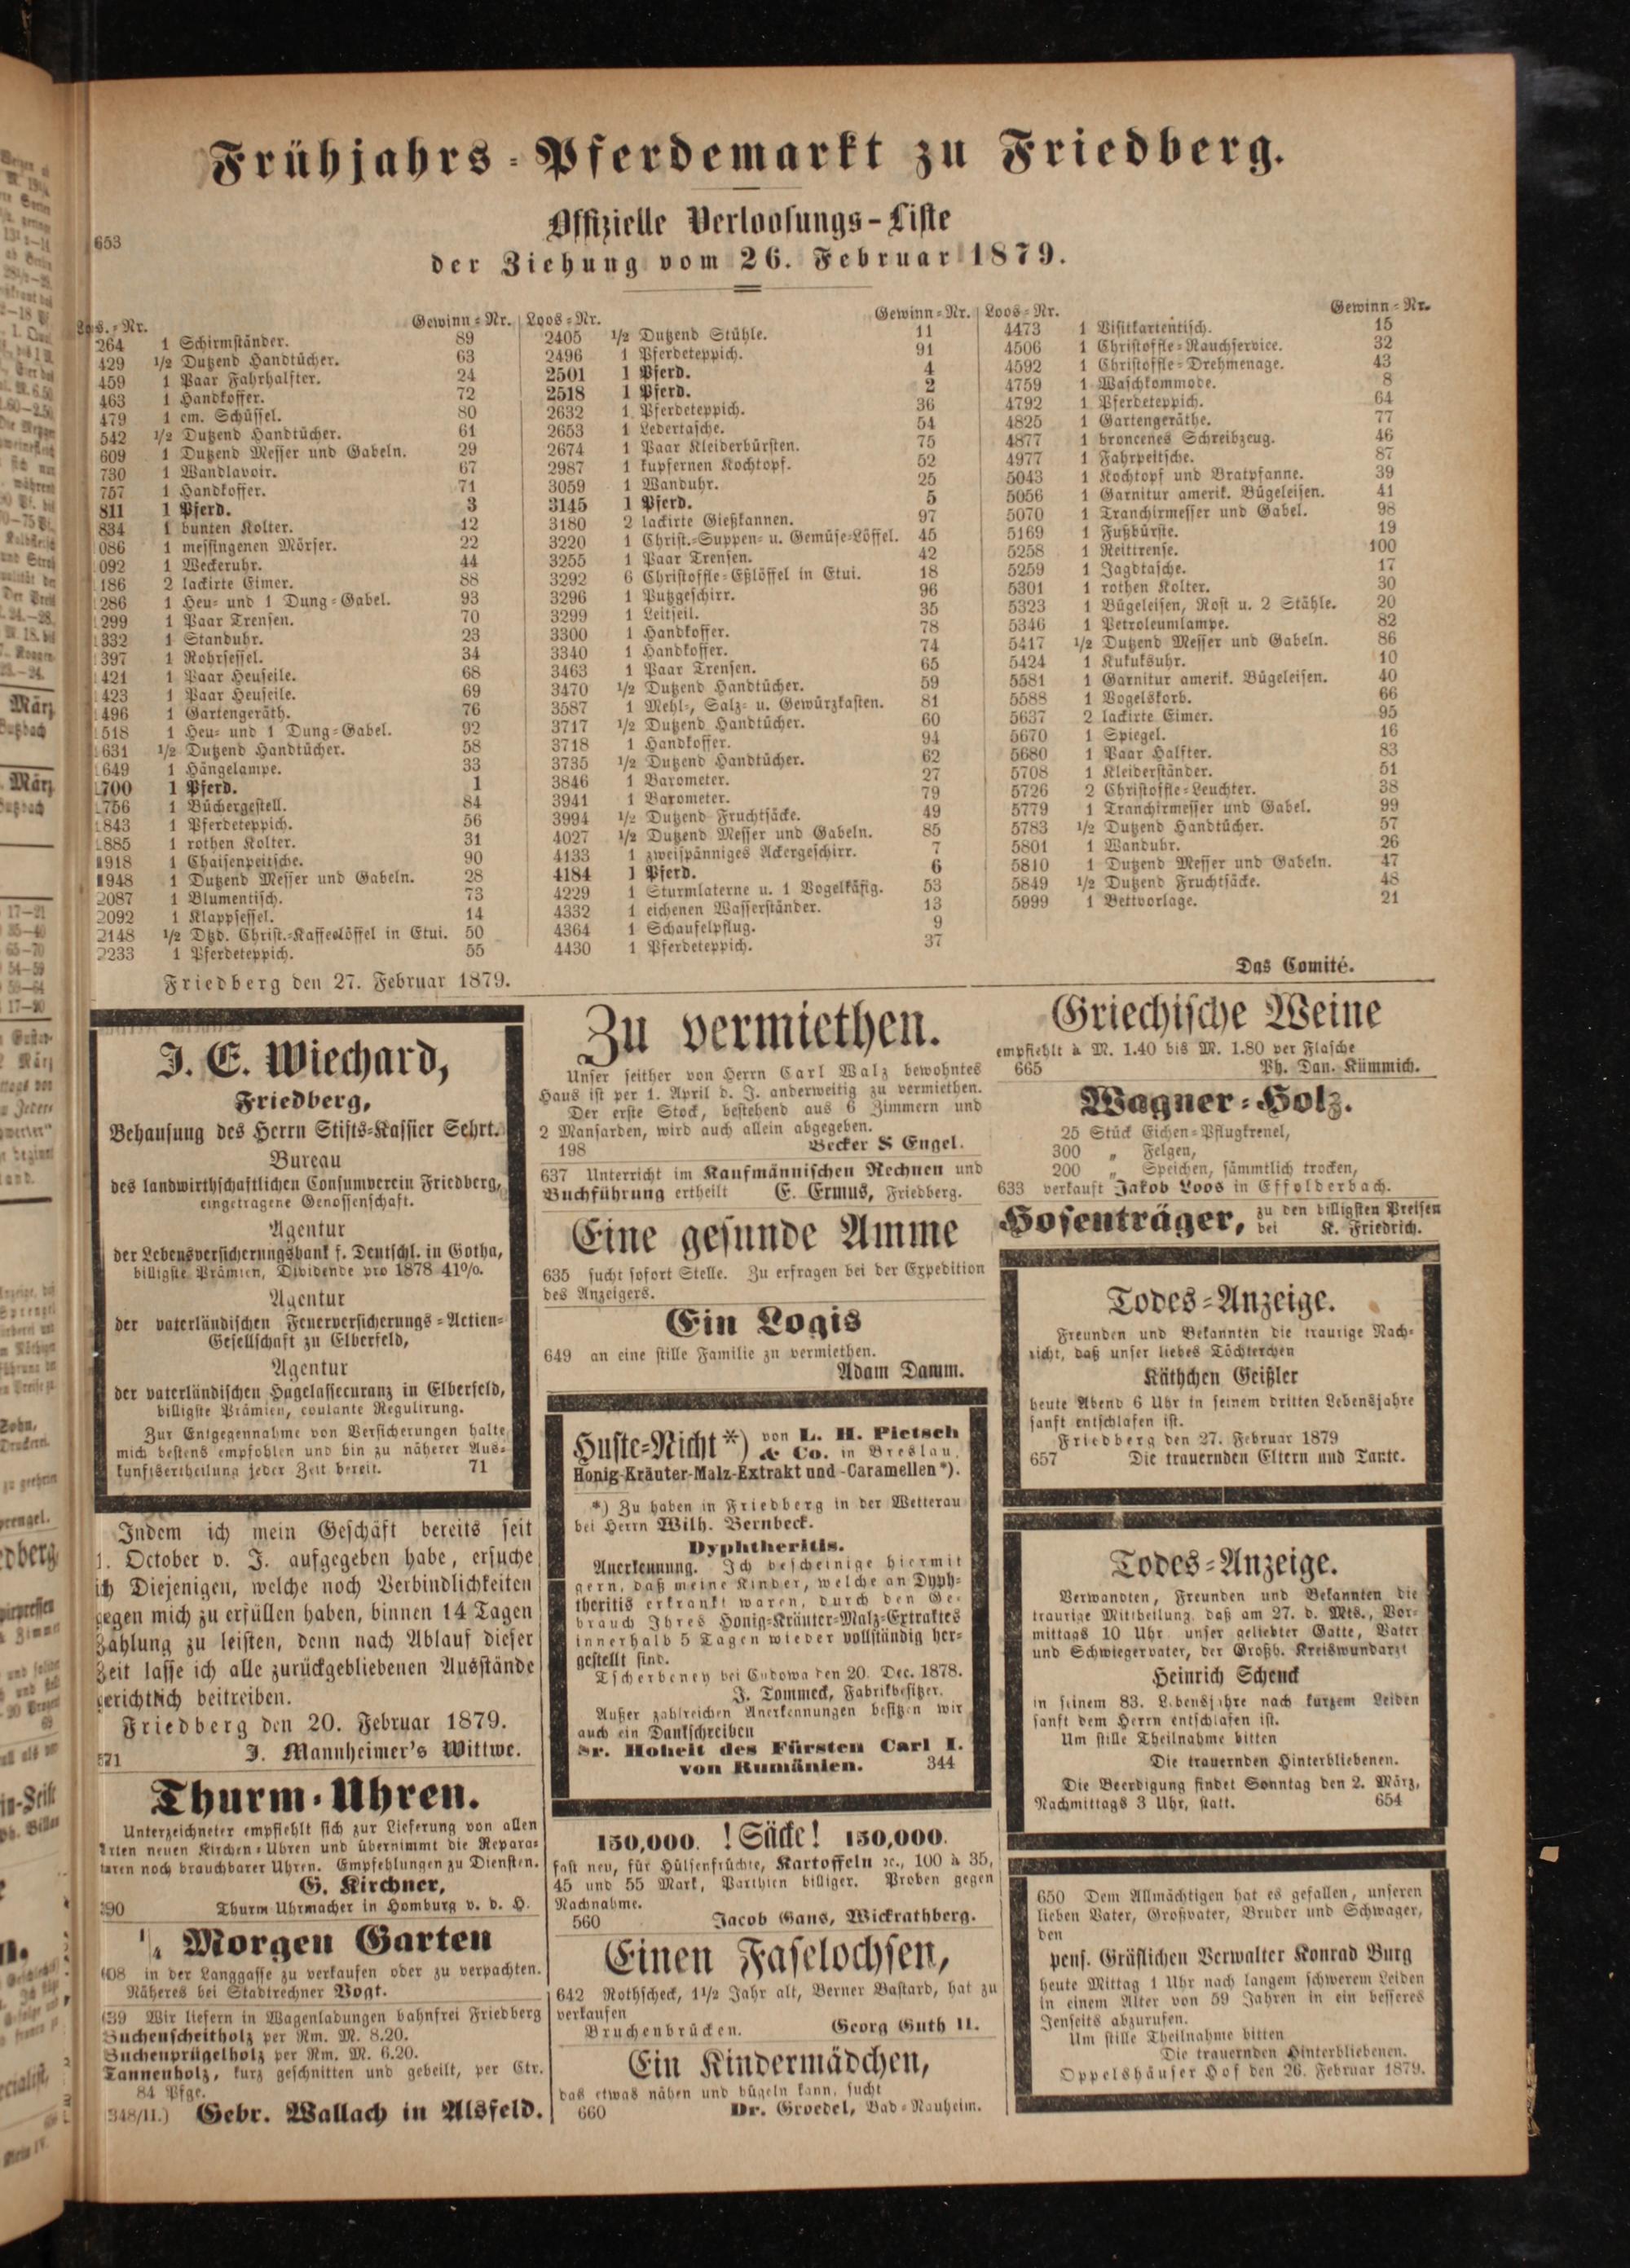 Frühjahrs-Pferdemarkt zu Friedberg.
Offizielle Verloosungs-Liste
653
der Ziehung vom 26. Februar 1879.
Nr. Gewinn-Nr.
264 1 Schirmständer. 89
429 1/2 Dutzend Handtücher. 63
459 1 Paar Fahrhalfter. 24
463 1 Handkoffer. 72
479 1 em. Schüssel. 80
542 1/2 Dutzend Handtücher. 61
609 1 Dutzend Messer und Gabeln. 29
730 1 Wandlavoir. 67
757 1 Handkoffer. 71
811 1 Pferd. 3
834 1 bunten Kolter. 12
086 1 messingenen Mörser. 22
092 1 Weckeruhr. 44
186 2 lackirte Eimer. 88
286 1 Heu- und 1 Dung-Gabel. 93
299 1 Paar Trensen. 70
332 1 Standuhr. 23
397 1 Rohrsessel. 34
421 1 Paar Heuseile. 68
423 1 Paar Heuseile. 69
496 1 Gartengeräth. 76
518 1 Heu- und 1 Dung-Gabel. 92
631 1/2 Dutzend Handtücher. 58
649 1 Hängelampe. 33
1700 1 Pferd. 1
1756 1 Büchergestell. 84
1843 1 Pferdeteppich. 56
1885 1 rothen Kolter. 31
1918 1 Chaisenpeitsche. 90
1948 1 Dutzend Messer und Gabeln. 28
2087 1 Blumentisch. 73
2092 1 Klappsessel. 14
2148 1/2 Dtzd. Christ.-Kaffeelöffel in Etui. 50
2233 1 Pferdeteppich. 55
Loos-Nr. Gewinn-Nr.
2405 1/2 Dutzend Stühle. 11
2496 1 Pferdeteppich. 91
2501 1 Pferd. 4
2518 1 Pferd. 2
2632 1 Pferdeteppich. 36
2653 1 Ledertasche. 54
2674 1 Paar Kleiderbürsten. 75
2987 1 kupfernen Kochtopf. 52
3059 1 Wanduhr. 25
3145 1 Pferd. 5
3180 2 lackirte Gießkannen. 97
3220 1 Christ.-Suppen- u. Gemüse-Löffel. 45
3255 1 Paar Trensen. 42
3292 6 Christoffle-Eßlöffel in Etui. 18
3296 1 Putzgeschirr. 96
3299 1 Leitseil. 35
3300 1 Handkoffer. 78
3340 1 Handkoffer. 74
3463 1 Paar Trensen. 65
3470 1/2 Dutzend Handtücher. 59
3587 1 Mehl-, Salz- u. Gewürzkasten. 81
3717 1/2 Dutzend Handtücher. 60
3718 1 Handkoffer. 94
3735 1/2 Dutzend Handtücher. 62
3846 1 Barometer. 27
3941 1 Barometer. 79
3994 1/2 Dutzend Fruchtsäcke. 49
4027 1/2 Dutzend Messer und Gabeln. 85
4133 1 zweispänniges Ackergeschirr. 7
4184 1 Pferd. 6
4229 1 Sturmlaterne u. 1 Vogelkäfig. 53
4332 1 eichenen Wasserständer. 13
4364 1 Schaufelpflug. 9
4430 1 Pferdeteppich. 37
Loos-Nr. Gewinn-Nr.
4473 1 Visitkartentisch. 15
4506 1 Christoffle-Rauchservice. 32
4592 1 Christoffle-Drehmenage. 43
4759 1 Waschkommode. 8
4792 1 Pferdeteppich. 64
4825 1 Gartengeräthe. 77
4877 1 broncenes Schreibzeug. 46
4977 1 Fahrpeitsche. 87
5043 1 Kochtopf und Bratpfanne. 39
5056 1 Garnitur amerik. Bügeleisen. 41
5070 1 Tranchirmesser und Gabel. 98
5169 1 Fußbürste. 19
5258 1 Reittrense. 100
5259 1 Jagdtasche. 17
5301 1 rothen Kolter. 30
5323 1 Bügeleisen, Rost u. 2 Stähle. 20
5346 1 Petroleumlampe. 82
5417 1/2 Dutzend Messer und Gabeln. 86
5424 1 Kukuksuhr. 10
5581 1 Garnitur amerik. Bügeleisen. 40
5588 1 Vogelskorb. 66
5637 2 lackirte Eimer. 95
5670 1 Spiegel. 16
5680 1 Paar Halfter. 83
5708 1 Kleiderständer. 51
5726 2 Christoffle-Leuchter. 38
5779 1 Tranchirmesser und Gabel. 99
5783 1/2 Dutzend Handtücher. 57
5801 1 Wanduhr. 26
5810 1 Dutzend Messer und Gabeln. 47
5849 1/2 Dutzend Fruchtsäcke. 48
5999 1 Bettvorlage. 21
Friedberg den 27. Februar 1879.
Das Comité.
J. E. Wiechard,
Friedberg,
Behausung des Herrn Stifts-Kassier Sehrt.
Bureau
des landwirthschaftlichen Consumverein Friedberg,
eingetragene Genossenschaft.
Agentur
der Lebensversicherungsbank f. Deutschl. in Gotha,
billigste Prämien, Dividende pro 1878 41%.
Agentur
der vaterländischen Feuerversicherungs-Actien-
Gesellschaft zu Elberfeld,
Agentur
der vaterländischen Hagelassecuranz in Elberfeld,
billigste Prämien, coulante Regulirung.
Zur Entgegennahme von Versicherungen halte
mich bestens empfohlen und bin zu näherer Aus-
kunftsertheilung jeder Zeit bereit. 71
Indem ich mein Geschäft bereits seit
1. October v. J. aufgegeben habe, ersuche
ich Diejenigen, welche noch Verbindlichkeiten
gegen mich zu erfüllen haben, binnen 14 Tagen
Zahlung zu leisten, denn nach Ablauf dieser
Zeit lasse ich alle zurückgebliebenen Ausstände
gerichtlich beitreiben.
Friedberg den 20. Februar 1879.
571 J. Mannheimer's Wittwe.
Thurm-Uhren.
Unterzeichneter empfiehlt sich zur Lieferung von allen
Arten neuen Kirchen-Uhren und übernimmt die Repara-
turen noch brauchbarer Uhren. Empfehlungen zu Diensten.
G. Kirchner,
390 Thurm-Uhrmacher in Homburg v. d. H.
1/4 Morgen Garten
608 in der Langgasse zu verkaufen oder zu verpachten.
Näheres bei Stadtrechner Vogt.
639 Wir liefern in Wagenladungen bahnfrei Friedberg
Buchenscheitholz per Rm. M. 8.20.
Buchenprügelholz per Rm. M. 6.20.
Tannenholz, kurz geschnitten und gebeilt, per Ctr.
84 Pfge.
348/II.) Gebr. Wallach in Alsfeld.
Zu vermiethen.
Unser seither von Herrn Carl Walz bewohntes
Haus ist per 1. April d. J. anderweitig zu vermiethen.
Der erste Stock, bestehend aus 6 Zimmern und
2 Mansarden, wird auch allein abgegeben.
198 Becker & Engel.
637 Unterricht im Kaufmännischen Rechnen und
Buchführung ertheilt E. Ermus, Friedberg.
Eine gesunde Amme
635 sucht sofort Stelle. Zu erfragen bei der Expedition
des Anzeigers.
Ein Logis
649 an eine stille Familie zu vermiethen.
Adam Damm.
Huste-Nicht*) von L. H. Pietsch
& Co. in Breslau,
Honig-Kräuter-Malz-Extrakt und -Caramellen*).
*) Zu haben in Friedberg in der Wetterau
bei Herrn Wilh. Bernbeck.
Dyphtheritis.
Anerkennung. Ich bescheinige hiermit
gern, daß meine Kinder, welche an Dyph-
theritis erkrankt waren, durch den Ge-
brauch Ihres Honig-Kräuter-Malz-Extraktes
innerhalb 5 Tagen wieder vollständig her-
gestellt sind.
Tscherbeney bei Cudowa den 20. Dec. 1878.
J. Tommeck, Fabrikbesitzer.
Außer zahlreichen Anerkennungen besitzen wir
auch ein Dankschreiben
Sr. Hoheit des Fürsten Carl I.
von Rumänien. 344
150,000. ! Säcke! 150,000.
fast neu, für Hülsenfrüchte, Kartoffeln ꝛc., 100 à 35,
45 und 55 Mark, Parthien billiger. Proben gegen
Nachnahme.
560 Jacob Gans, Wickrathberg.
Einen Faselochsen,
642 Rothscheck, 1 1/2 Jahr alt, Berner Bastard, hat zu
verkaufen
Bruchenbrücken. Georg Guth II.
Ein Kindermädchen,
das etwas nähen und bügeln kann, sucht
660 Dr. Groedel, Bad-Nauheim.
Griechische Weine
empfiehlt à M. 1.40 bis M. 1.80 per Flasche
665 Ph. Dan. Kümmich.
Wagner-Holz.
25 Stück Eichen-Pflugkrenel,
300 „ Felgen,
200 „ Speichen, sämmtlich trocken,
633 verkauft Jakob Loos in Effolderbach.
Hosenträger, zu den billigsten Preisen
bei K. Friedrich.
Todes-Anzeige.
Freunden und Bekannten die traurige Nach-
richt, daß unser liebes Töchterchen
Käthchen Geißler
heute Abend 6 Uhr in seinem dritten Lebensjahre
sanft entschlafen ist.
Friedberg den 27. Februar 1879
657 Die trauernden Eltern und Tante.
Todes-Anzeige.
Verwandten, Freunden und Bekannten die
traurige Mittheilung, daß am 27. d. Mts., Vor-
mittags 10 Uhr unser geliebter Gatte, Vater
und Schwiegervater, der Großh. Kreiswundarzt
Heinrich Schenck
in seinem 83. Lebensjahre nach kurzem Leiden
sanft dem Herrn entschlafen ist.
Um stille Theilnahme bitten
Die trauernden Hinterbliebenen.
Die Beerdigung findet Sonntag den 2. März,
Nachmittags 3 Uhr, statt. 654
650 Dem Allmächtigen hat es gefallen, unseren
lieben Vater, Großvater, Bruder und Schwager,
den
pens. Gräflichen Verwalter Konrad Burg
heute Mittag 1 Uhr nach langem schwerem Leiden
in einem Alter von 59 Jahren in ein besseres
Jenseits abzurufen.
Um stille Theilnahme bitten
Die trauernden Hinterbliebenen.
Oppelshäuser Hof den 26. Februar 1879.